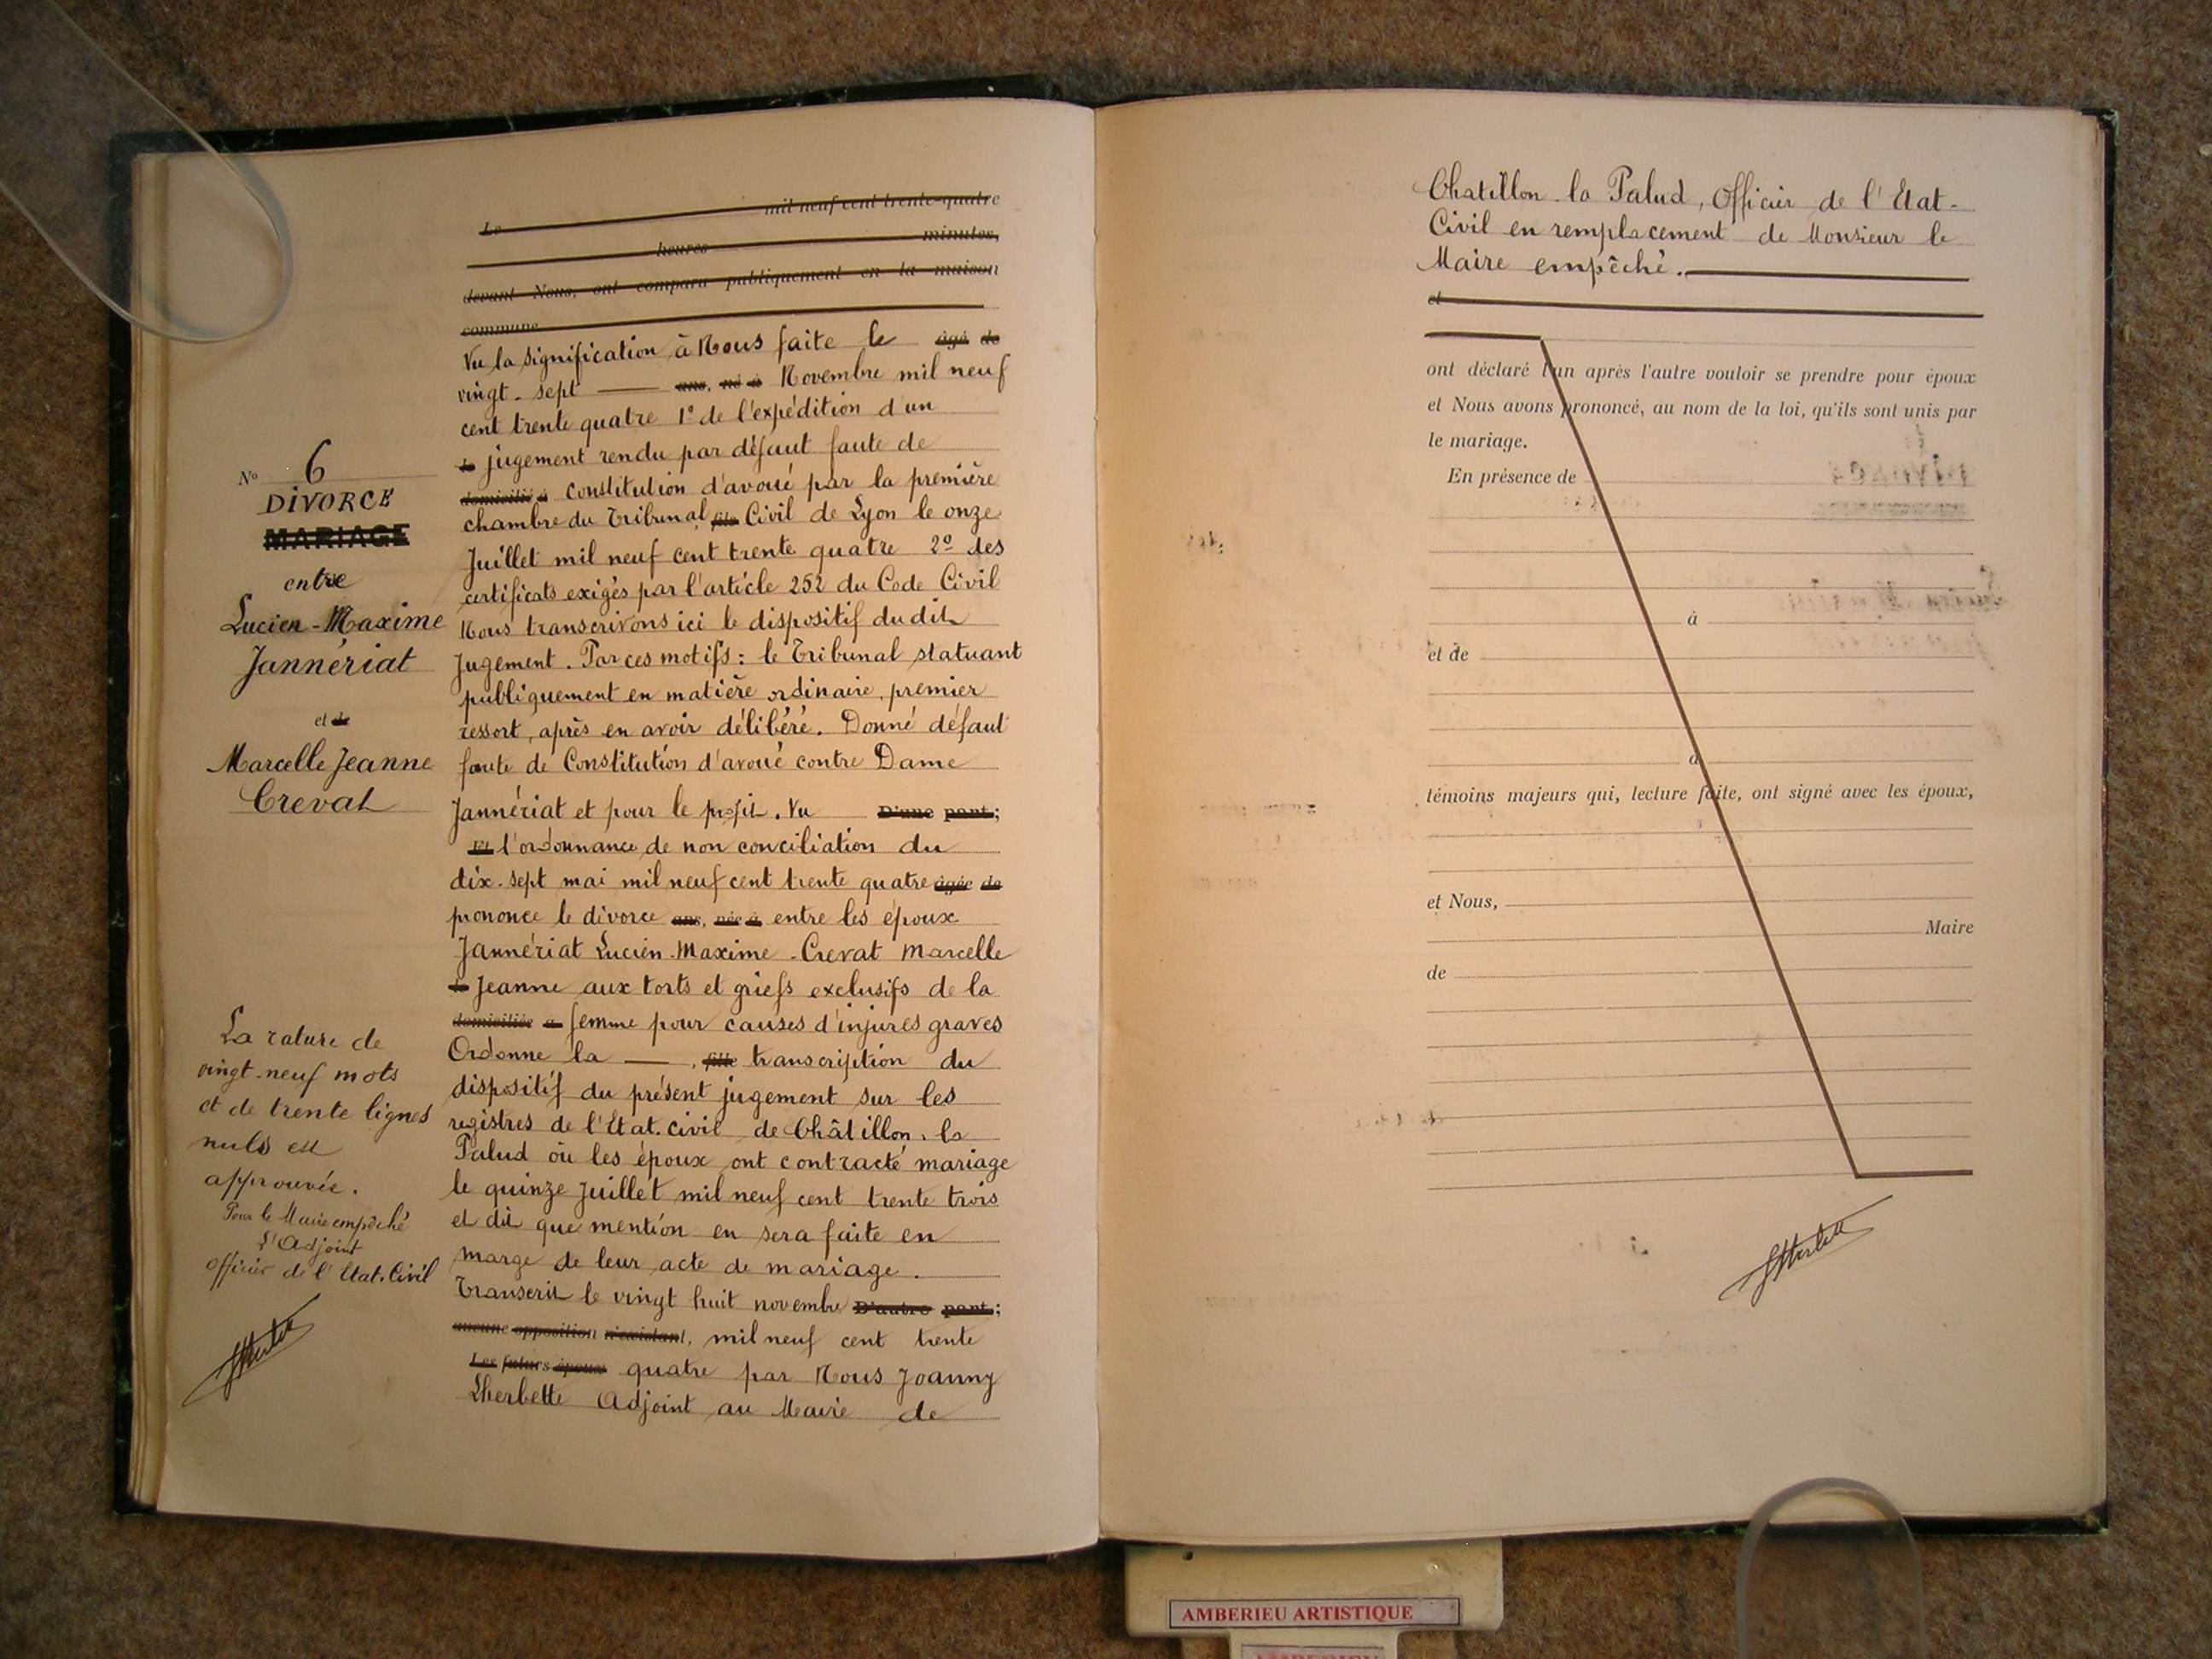 Le mil neuf cent trente-quatre
heures minutes,
devant Nous, ont comparu publiquement en la maison
commune
Vu la signification à Nous faite le âgé de
vingt-sept ans, né à Novembre mil neuf
cent trente quatre 1° de l'expédition d'un
le jugement rendu par défaut faute de
domicilié à constitution d'avoué par la première
chambre du Tribunal fils Civil de Lyon le onze
Juillet mil neuf cent trente quatre 2° des
certificats exigés par l'article 252 du Code Civil
Nous transcrivons ici le dispositif du dit
Jugement. Par ces motifs : le Tribunal statuant
publiquement en matière ordinaire, premier
ressort, après en avoir délibéré. Donné défaut
faute de Constitution d'avoué contre Dame
Jannériat et pour le profit. Vu D'une part;
Et l'ordonnance de non conciliation du
dix-sept mai mil neuf cent trente quatre âgée de
prononce le divorce ans, née à entre les époux
Jannériat Lucien-Maxime-Crevat Marcelle
Jeanne aux torts et griefs exclusifs de la
domiciliée à femme pour causes d'injures graves
Ordonne la , fille transcription du
dispositif du présent jugement sur les
registres de l'Etat-Civil de Châtillon-la
Palud où les époux ont contracté mariage
le quinze Juillet mil neuf cent trente trois
et dit que mention en sera faite en
marge de leur acte de mariage.
Transcrit le vingt huit novembre D'autre part;
aucune opposition n'existant, mil neuf cent trente
Les futurs époux quatre par Nous Joanny
Lherbette Adjoint au Maire de
N° 6
DIVORCE
MARIAGE
entre
Lucien-Maxime
Jannériat
et de
Marcelle Jeanne
Crevat
La rature de
vingt-neuf mots
et de trente lignes
nuls est
approuvée.
Pour le Maire empêché
L'Adjoint
Officier de l'Etat-Civil
Chatillon-la Palud, Officier de l'Etat-
Civil en remplacement de Monsieur le
Maire empêché.
et
ont déclaré l'un après l'autre vouloir se prendre pour époux
et Nous avons prononcé, au nom de la loi, qu'ils sont unis par
le mariage.
En présence de
à
et de
à
témoins majeurs qui, lecture faite, ont signé avec les époux,
et Nous,
Maire
de
AMBERIEU ARTISTIQUE
AMBERIEU